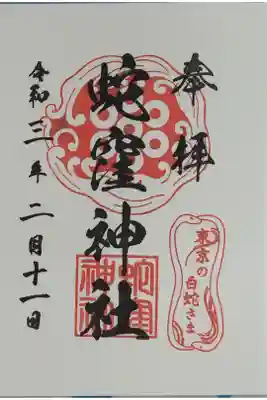 奉拝
蛇窪神社
令和三年二月十一日
東京の
白蛇さま
蛇窪
神社